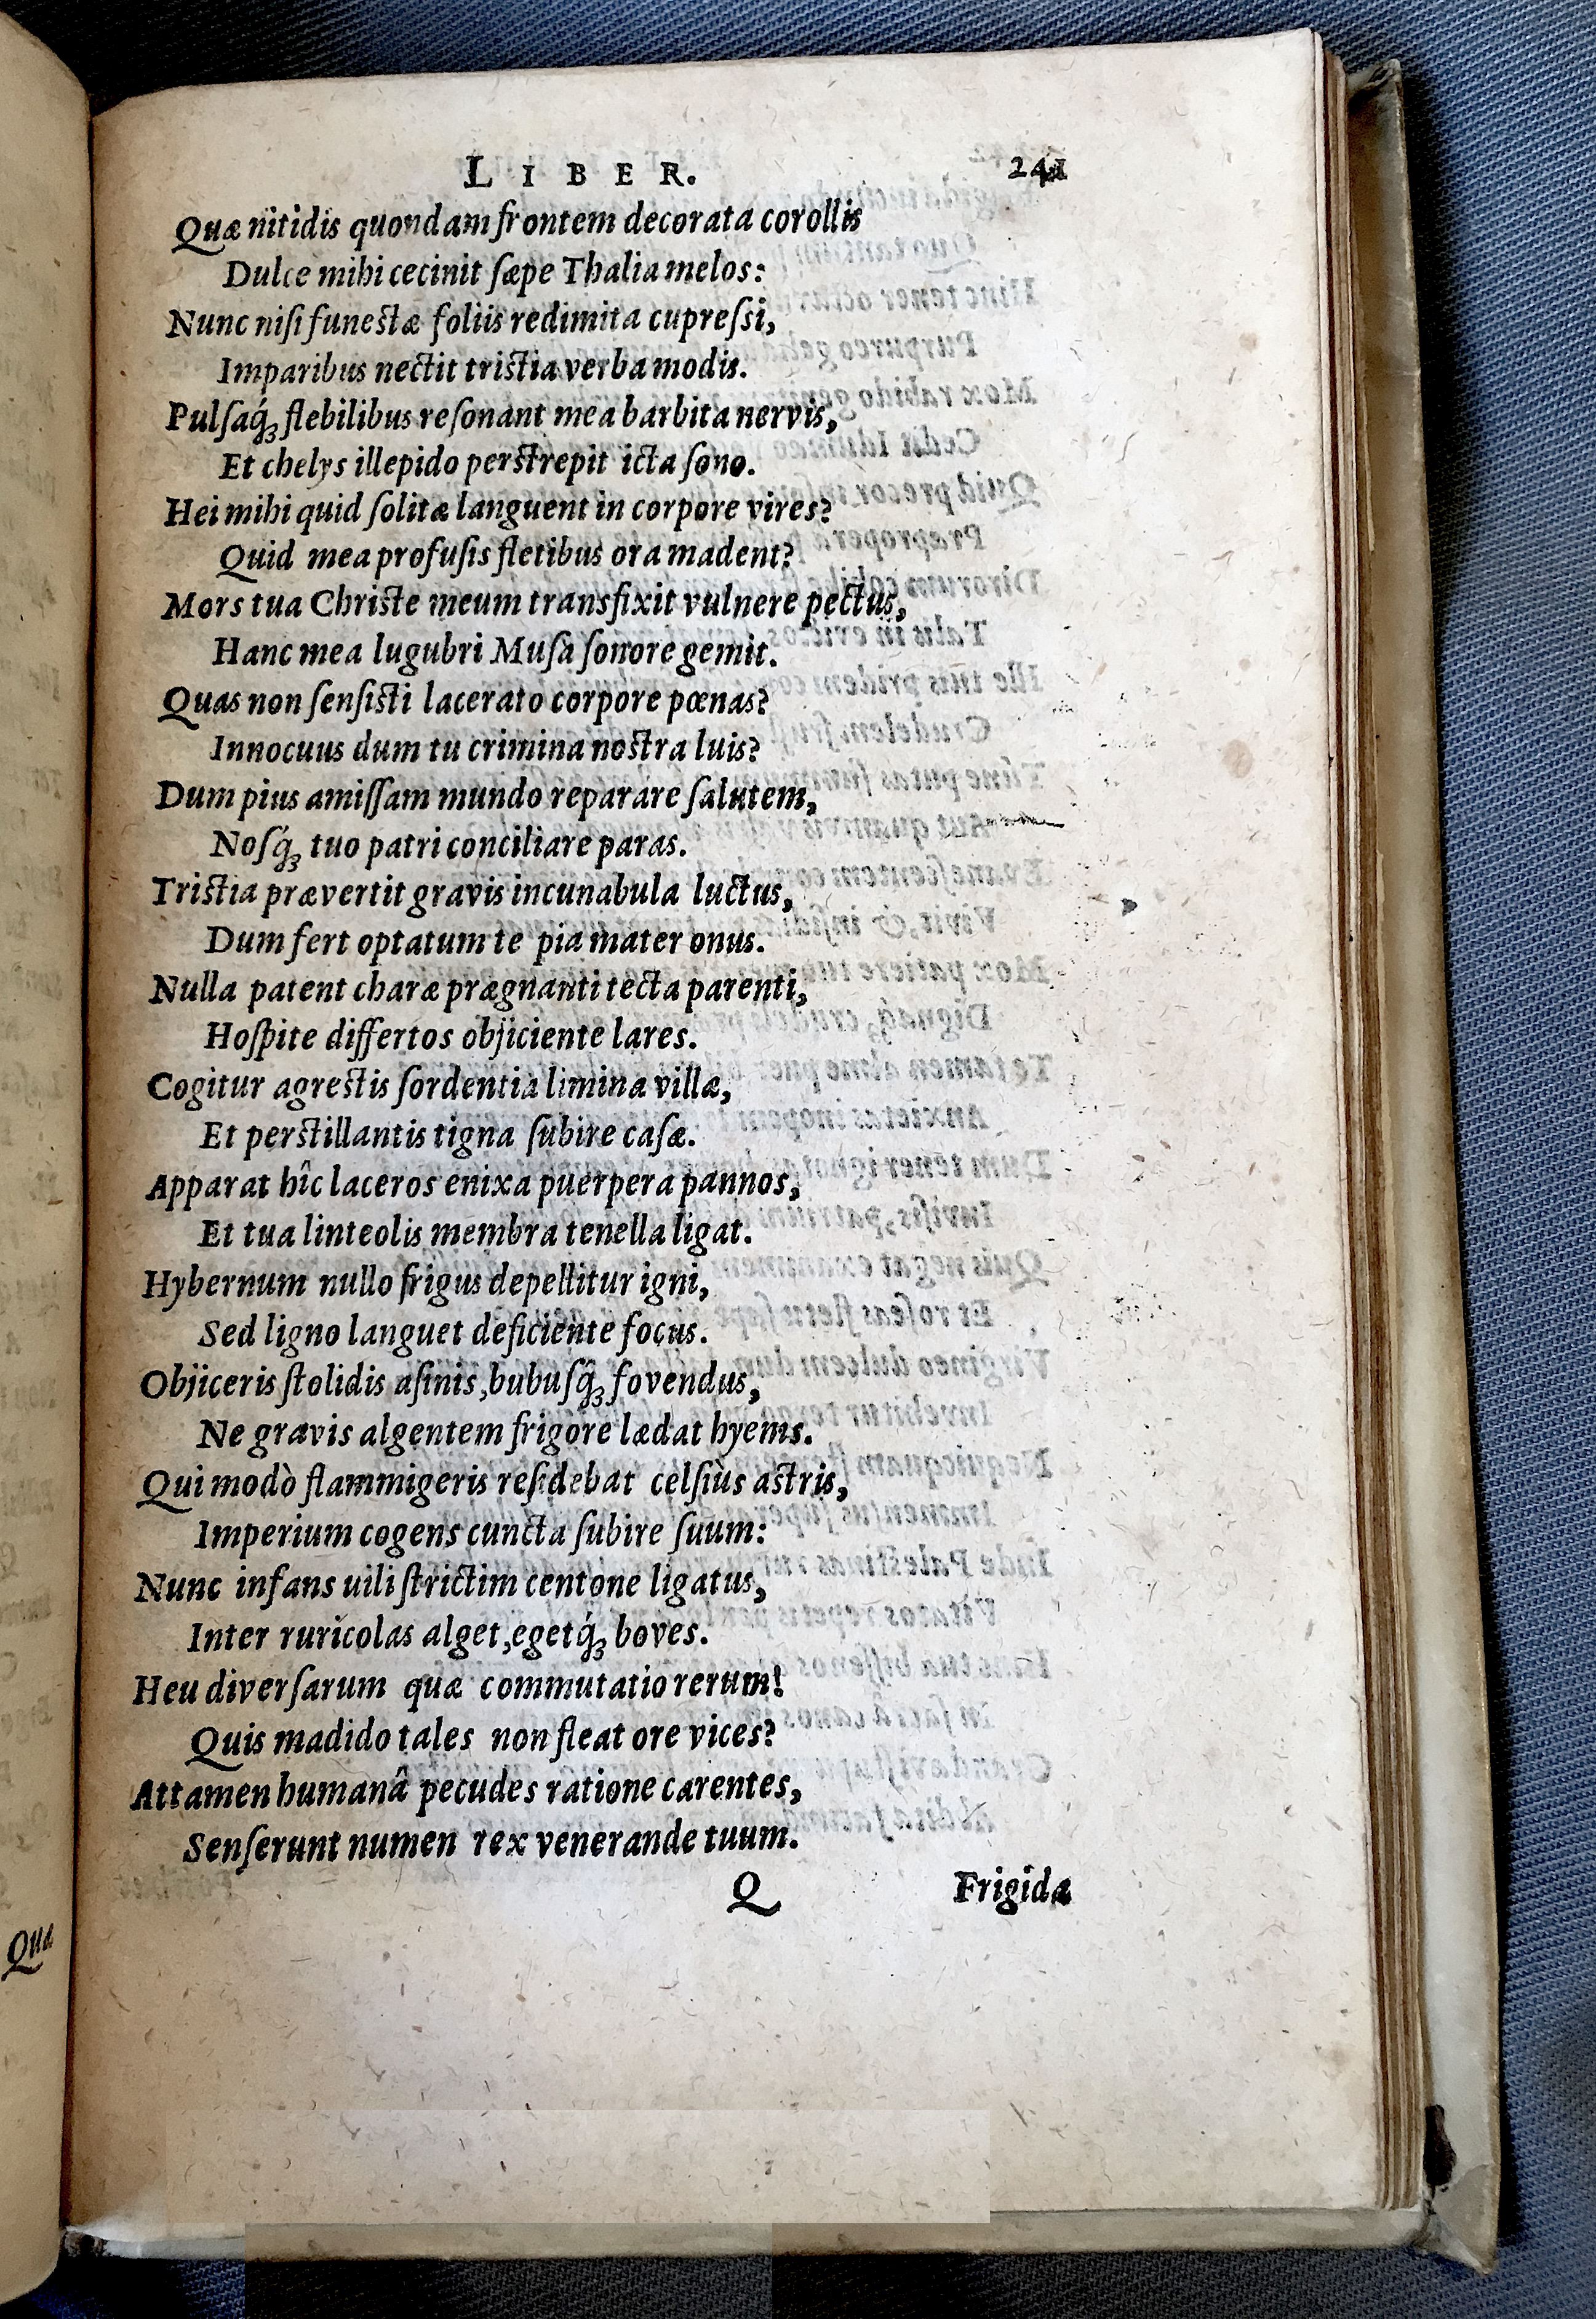 LIBER. 241
Quæ nitidis quondam frontem decorata corollis
Dulce mihi cecinit ſæpe Thalia melos:
Nunc niſi funeſtæ foliis redimita cupreſsi,
Imparibus nectit triſtia verba modis.
Pulſaq́ꝫ flebilibus reſonant mea barbita nervis,
Et chelys illepido perſtrepit icta ſono.
Hei mihi quid ſolitæ languent in corpore vires?
Quid mea profuſis fletibus ora madent?
Mors tua Chriſte meum transfixit vulnere pectus,
Hanc mea lugubri Muſa ſonore gemit.
Quas non ſenſiſti lacerato corpore pœnas?
Innocuus dum tu crimina noſtra luis?
Dum pius amiſſam mundo reparare ſalutem,
Noſq́ꝫ tuo patri conciliare paras.
Triſtia prævertit gravis incunabula luctus,
Dum fert optatum te pia mater onus.
Nulla patent charæ prægnanti tecta parenti,
Hoſpite differtos objiciente lares.
Cogitur agreſtis ſordentia limina villæ,
Et perſtillantis tigna ſubire caſæ.
Apparat hîc laceros enixa puerpera pannos,
Et tua linteolis membra tenella ligat.
Hybernum nullo frigus depellitur igni,
Sed ligno languet deficiente focus.
Objiceris ſtolidis aſinis, bubuſq́ꝫ fovendus,
Ne gravis algentem frigore lædat hyems.
Qui modò flammigeris reſidebat celſiùs aſtris,
Imperium cogens cuncta ſubire ſuum:
Nunc infans uili ſtrictim centone ligatus,
Inter ruricolas alget, egetq́ꝫ boves.
Heu diverſarum quæ commutatio rerum!
Quis madido tales non fleat ore vices?
Attamen humanâ pecudes ratione carentes,
Senſerunt numen rex venerande tuum.
Q Frigida
Qua